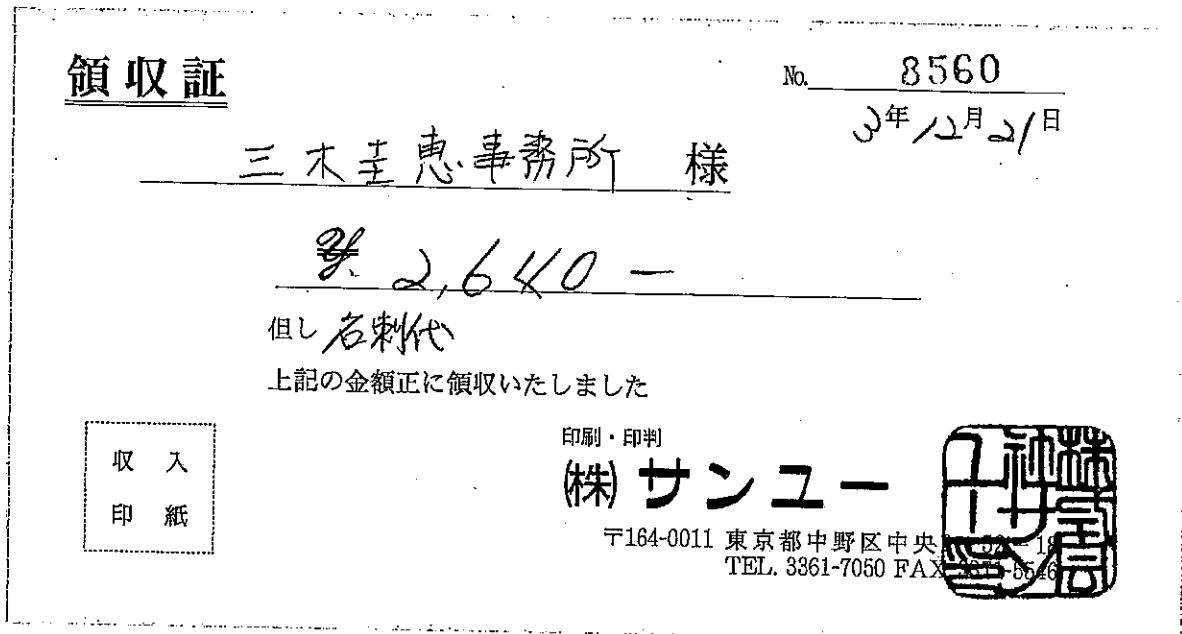 領収証
No. 8560
3年12月21日
三木圭恵事務所 様
¥ 2,640 —
但し 名刺代
上記の金額正に領収いたしました
収入
印紙
印刷・印判
㈱サンユー
〒164-0011 東京都中野区中央
TEL. 3361-7050 FAX
株式会社サンユー